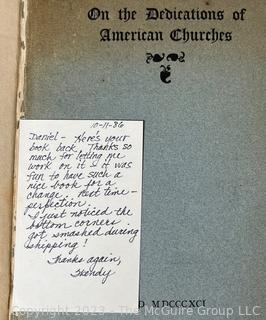 On the Dedications of
American Churches
10-11-86
Daniel - Here's your
book back. Thanks so
much for letting me
work on it & it was
fun to have such a
nice book for a
change. Next time -
perfection.
I just noticed the
bottom corners
got smashed during
shipping!
Thanks again,
Wendy
D MDCCCXCI